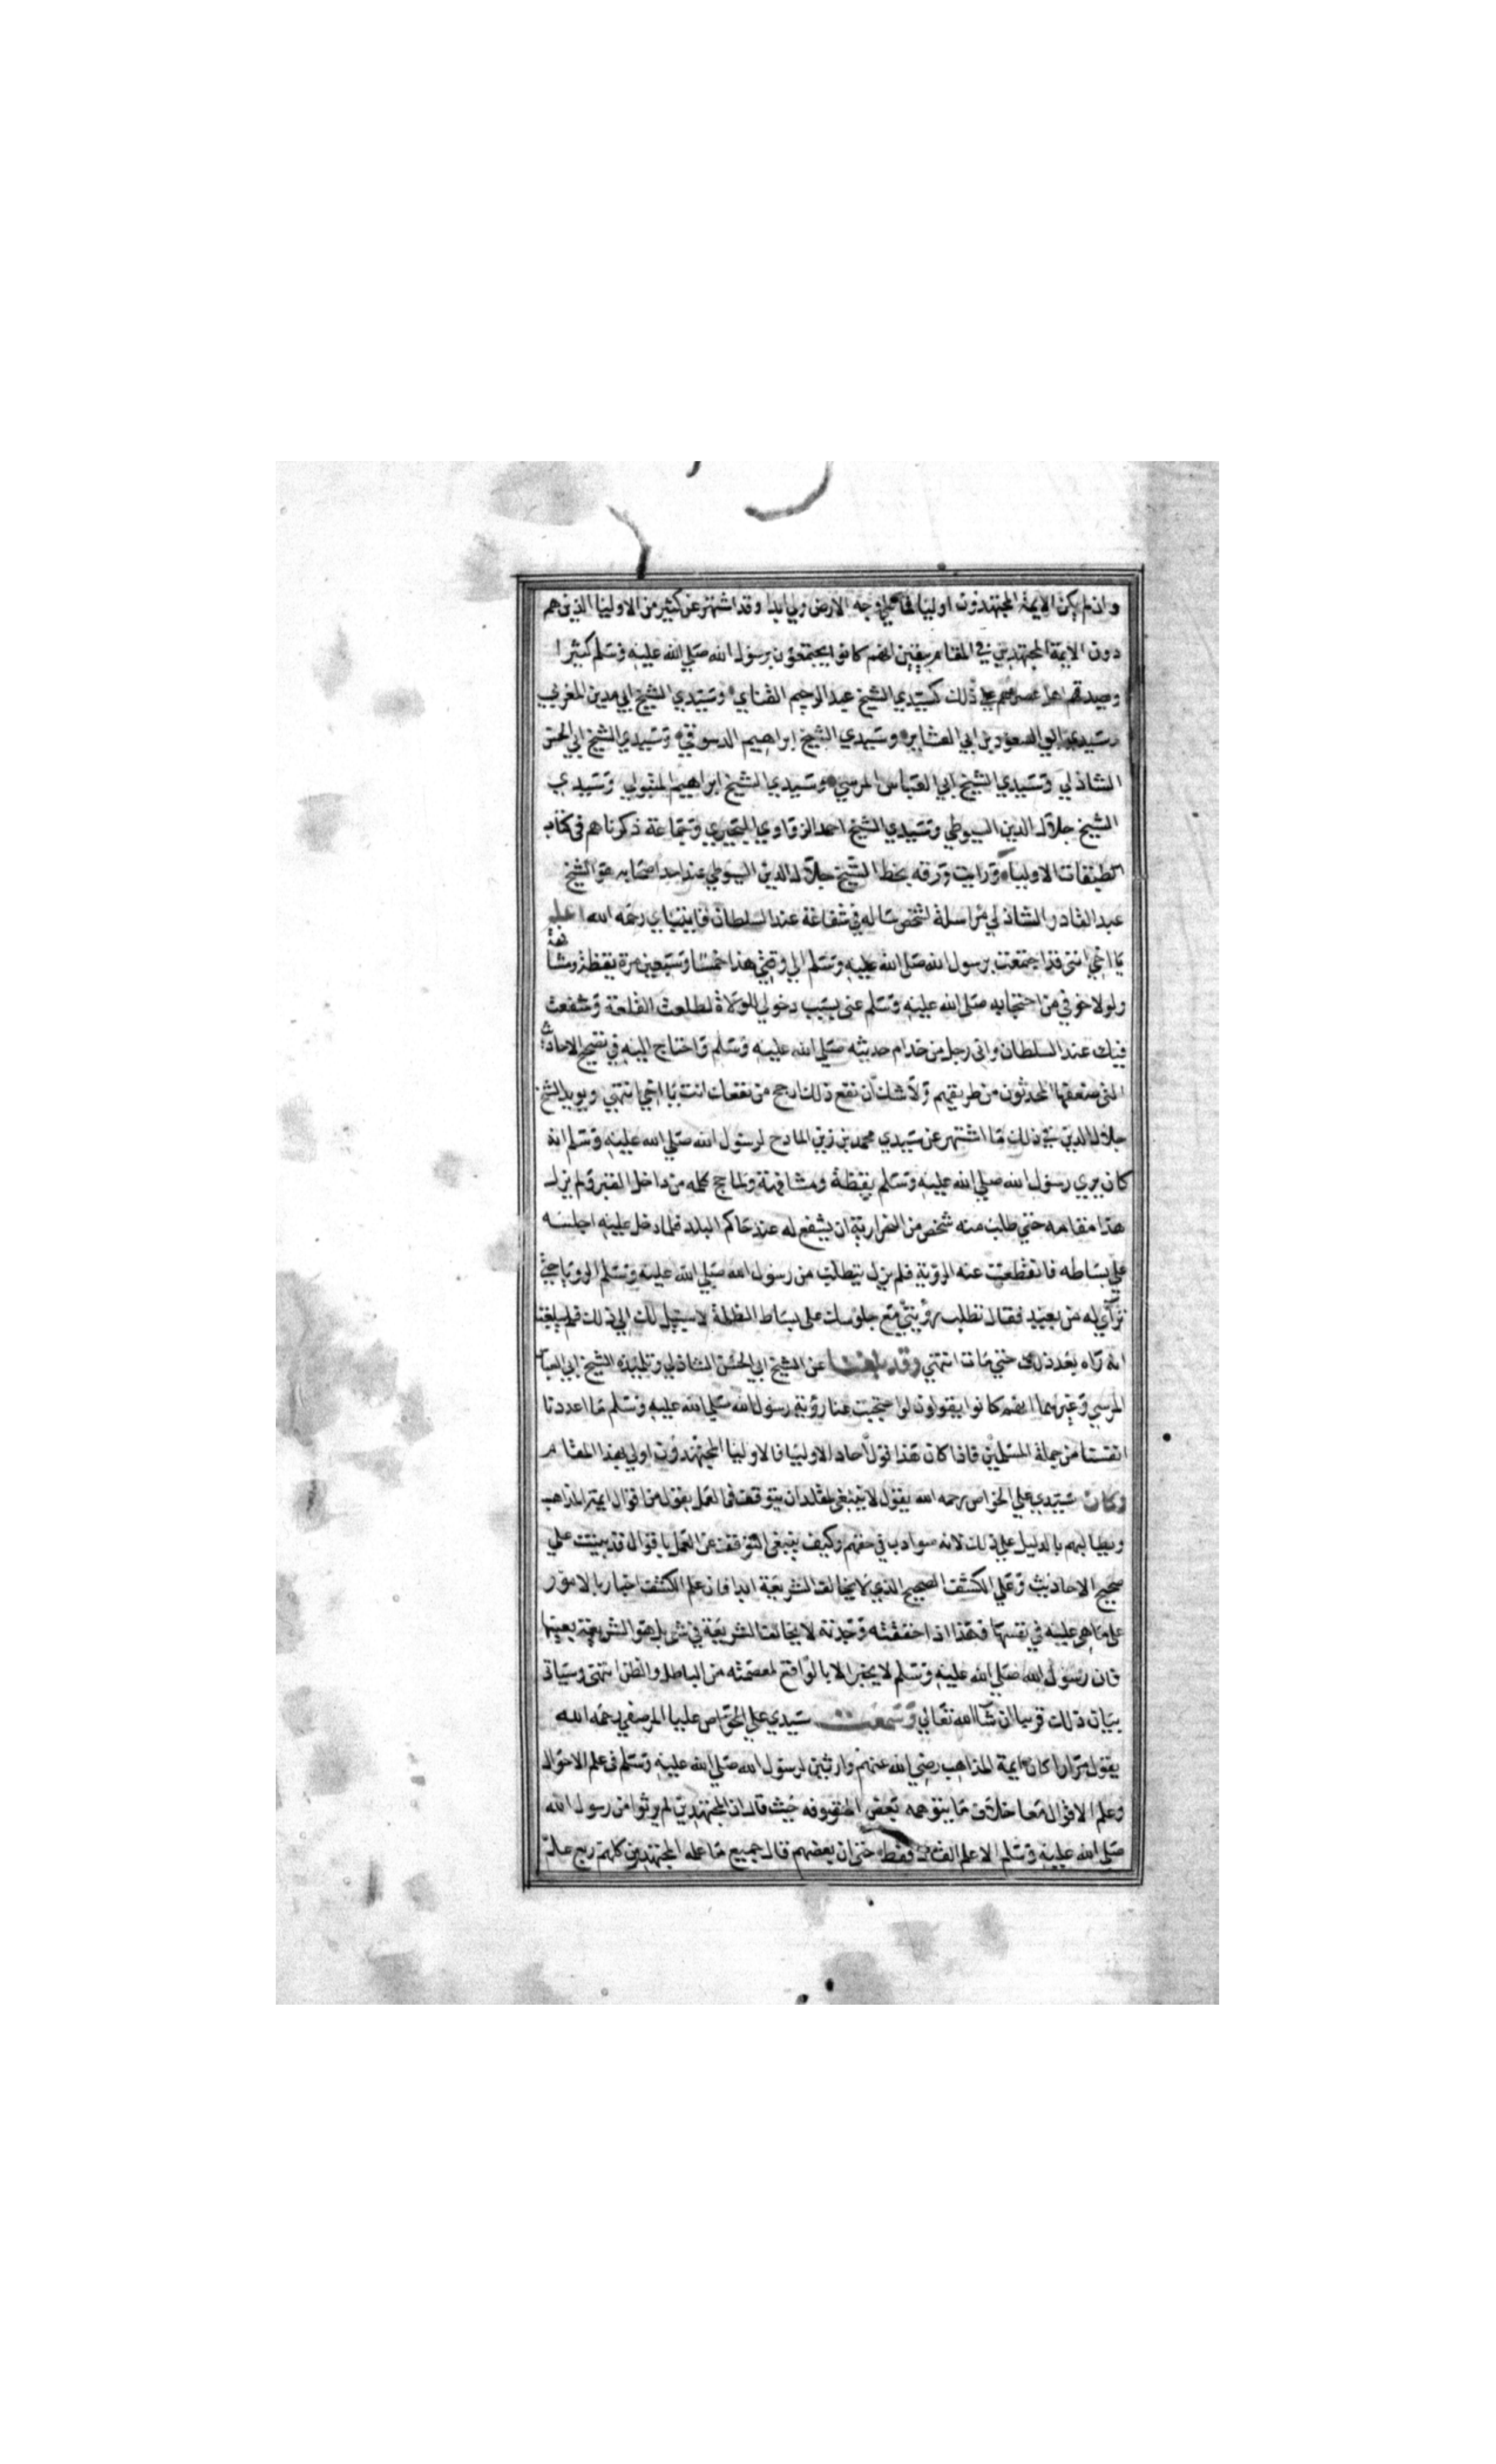 وان لم يكن الايمة المجتهدون اوليا فما علي وجه الارض ولي ابدا وقد اشتهر عن كثير من الاوليا الذين هم
دون الايمة المجتهدين في المقام بيقين انهم كانوا يجتمعون برسول الله صلي الله عليه وسلم كثيرا
ويصدقهم اهل عصرهم علي ذلك كسيدي الشيخ عبد الرحيم القناي وسيدي الشيخ ابي مدين المغربي
وسيدي ابي السعود بن ابي العشاير وسيدي الشيخ ابراهيم الدسوقي وسيدي الشيخ ابي الحسن
الشاذلي وسيدي الشيخ ابي العباس المرسي وسيدي الشيخ ابراهيم المتبولي وسيدي
الشيخ جلال الدين السيوطي وسيدي الشيخ احمد الزواوي البحيري وجماعة ذكرناهم في كتاب
طبقات الاولياء ورايت ورقه بخط الشيخ جلال الدين السيوطي عند احد اصحابه هو الشيخ
عبد القادر الشاذلي مراسلة لشخص ساله في شفاعة عند السلطان قايتباي رحمه الله اعلم
يا اخي انني قد اجتمعت برسول الله صلي الله عليه وسلم الي وقتي هذا خمسا وسبعين مرة يقظة ومشافهة
ولولا خوفي من احتجابه صلي الله عليه وسلم عني بسبب دخولي للولاة لطلعت القلعة وشفعت
فيك عند السلطان واني رجل من خدام حديثه صلي الله عليه وسلم واحتاج اليه في تصحيح الاحاديث
التي ضعفها المحدثون من طريقهم ولا شك ان نفع ذلك ارجح من نفعك انت يا اخي انتهي ويويد الشيخ
جلال الدين في ذلك ما اشتهر عن سيدي محمد بن زين المادح لرسول الله صلي الله عليه وسلم انه
كان يري رسول الله صلي الله عليه وسلم يقظة ومشافهة ولما حج كلمه من داخل القبر ولم يزل
هذا مقامه حتي طلب منه شخص من النحرارية ان يشفع له عند حاكم البلد فلما دخل عليه اجلسه
علي بساطه فانقطعت عنه الروية فلم يزل يتطلب من رسول الله صلي الله عليه وسلم الرويا حتي
تراي له من بعيد فقال تطلب رويتي مع جلوسك علي بساط الظلمة لا سبيل لك الي ذلك فلم يبلغنا
انه راه بعد ذلك حتي مات انتهي وقد بلغنا عن الشيخ ابي الحسن الشاذلي وتلميذه الشيخ ابي العباس
المرسي وغيرهما انهم كانوا يقولون لو احتجبت عنا روية رسول الله صلي الله عليه وسلم ما اعددنا
انفسنا من جملة المسلمين فاذا كان هذا قول احاد الاوليا فالاوليا المجتهدون اولي بهذا المقام
وكان سيدي علي الخواص رحمه الله يقول لا ينبغي لمقلد ان يتوقف في العمل بقول من اقوال ايمة المذاهب
ويطالبهم بالدليل علي ذلك لانه سوادب في حقهم وكيف ينبغي التوقف عن العمل باقوال قد بنيت علي
صحيح الاحاديث وعلي الكشف الصحيح الذي لا يخالف الشريعة ابدا فان علم الكشف اخبار بالامور
علي ما هي عليه في نفسها فهذا اذا حققته وجدته لا يخالف الشريعة في شي بل هو الشريعة بعينها
فان رسول الله صلي الله عليه وسلم لا يخبر الا بالواقع لعصمته من الباطل والظن انتهي وسياتي
بيان ذلك قريبا ان شا الله تعالي وسمعت سيدي علي الخواص عليا المرصفي رحمه الله
يقول مرارا كان ايمة المذاهب رضي الله عنهم وارثين لرسول الله صلي الله عليه وسلم في علم الاحوال
وعلم الاقوال معا خلاف ما يتوهمه بعض المتصوفه حيث قال ان المجتهدين لم يرثوا من رسول الله
صلي الله عليه وسلم الا علم القال فقط حتي ان بعضهم قال جميع ما علمه المجتهدين كلهم ربع علم